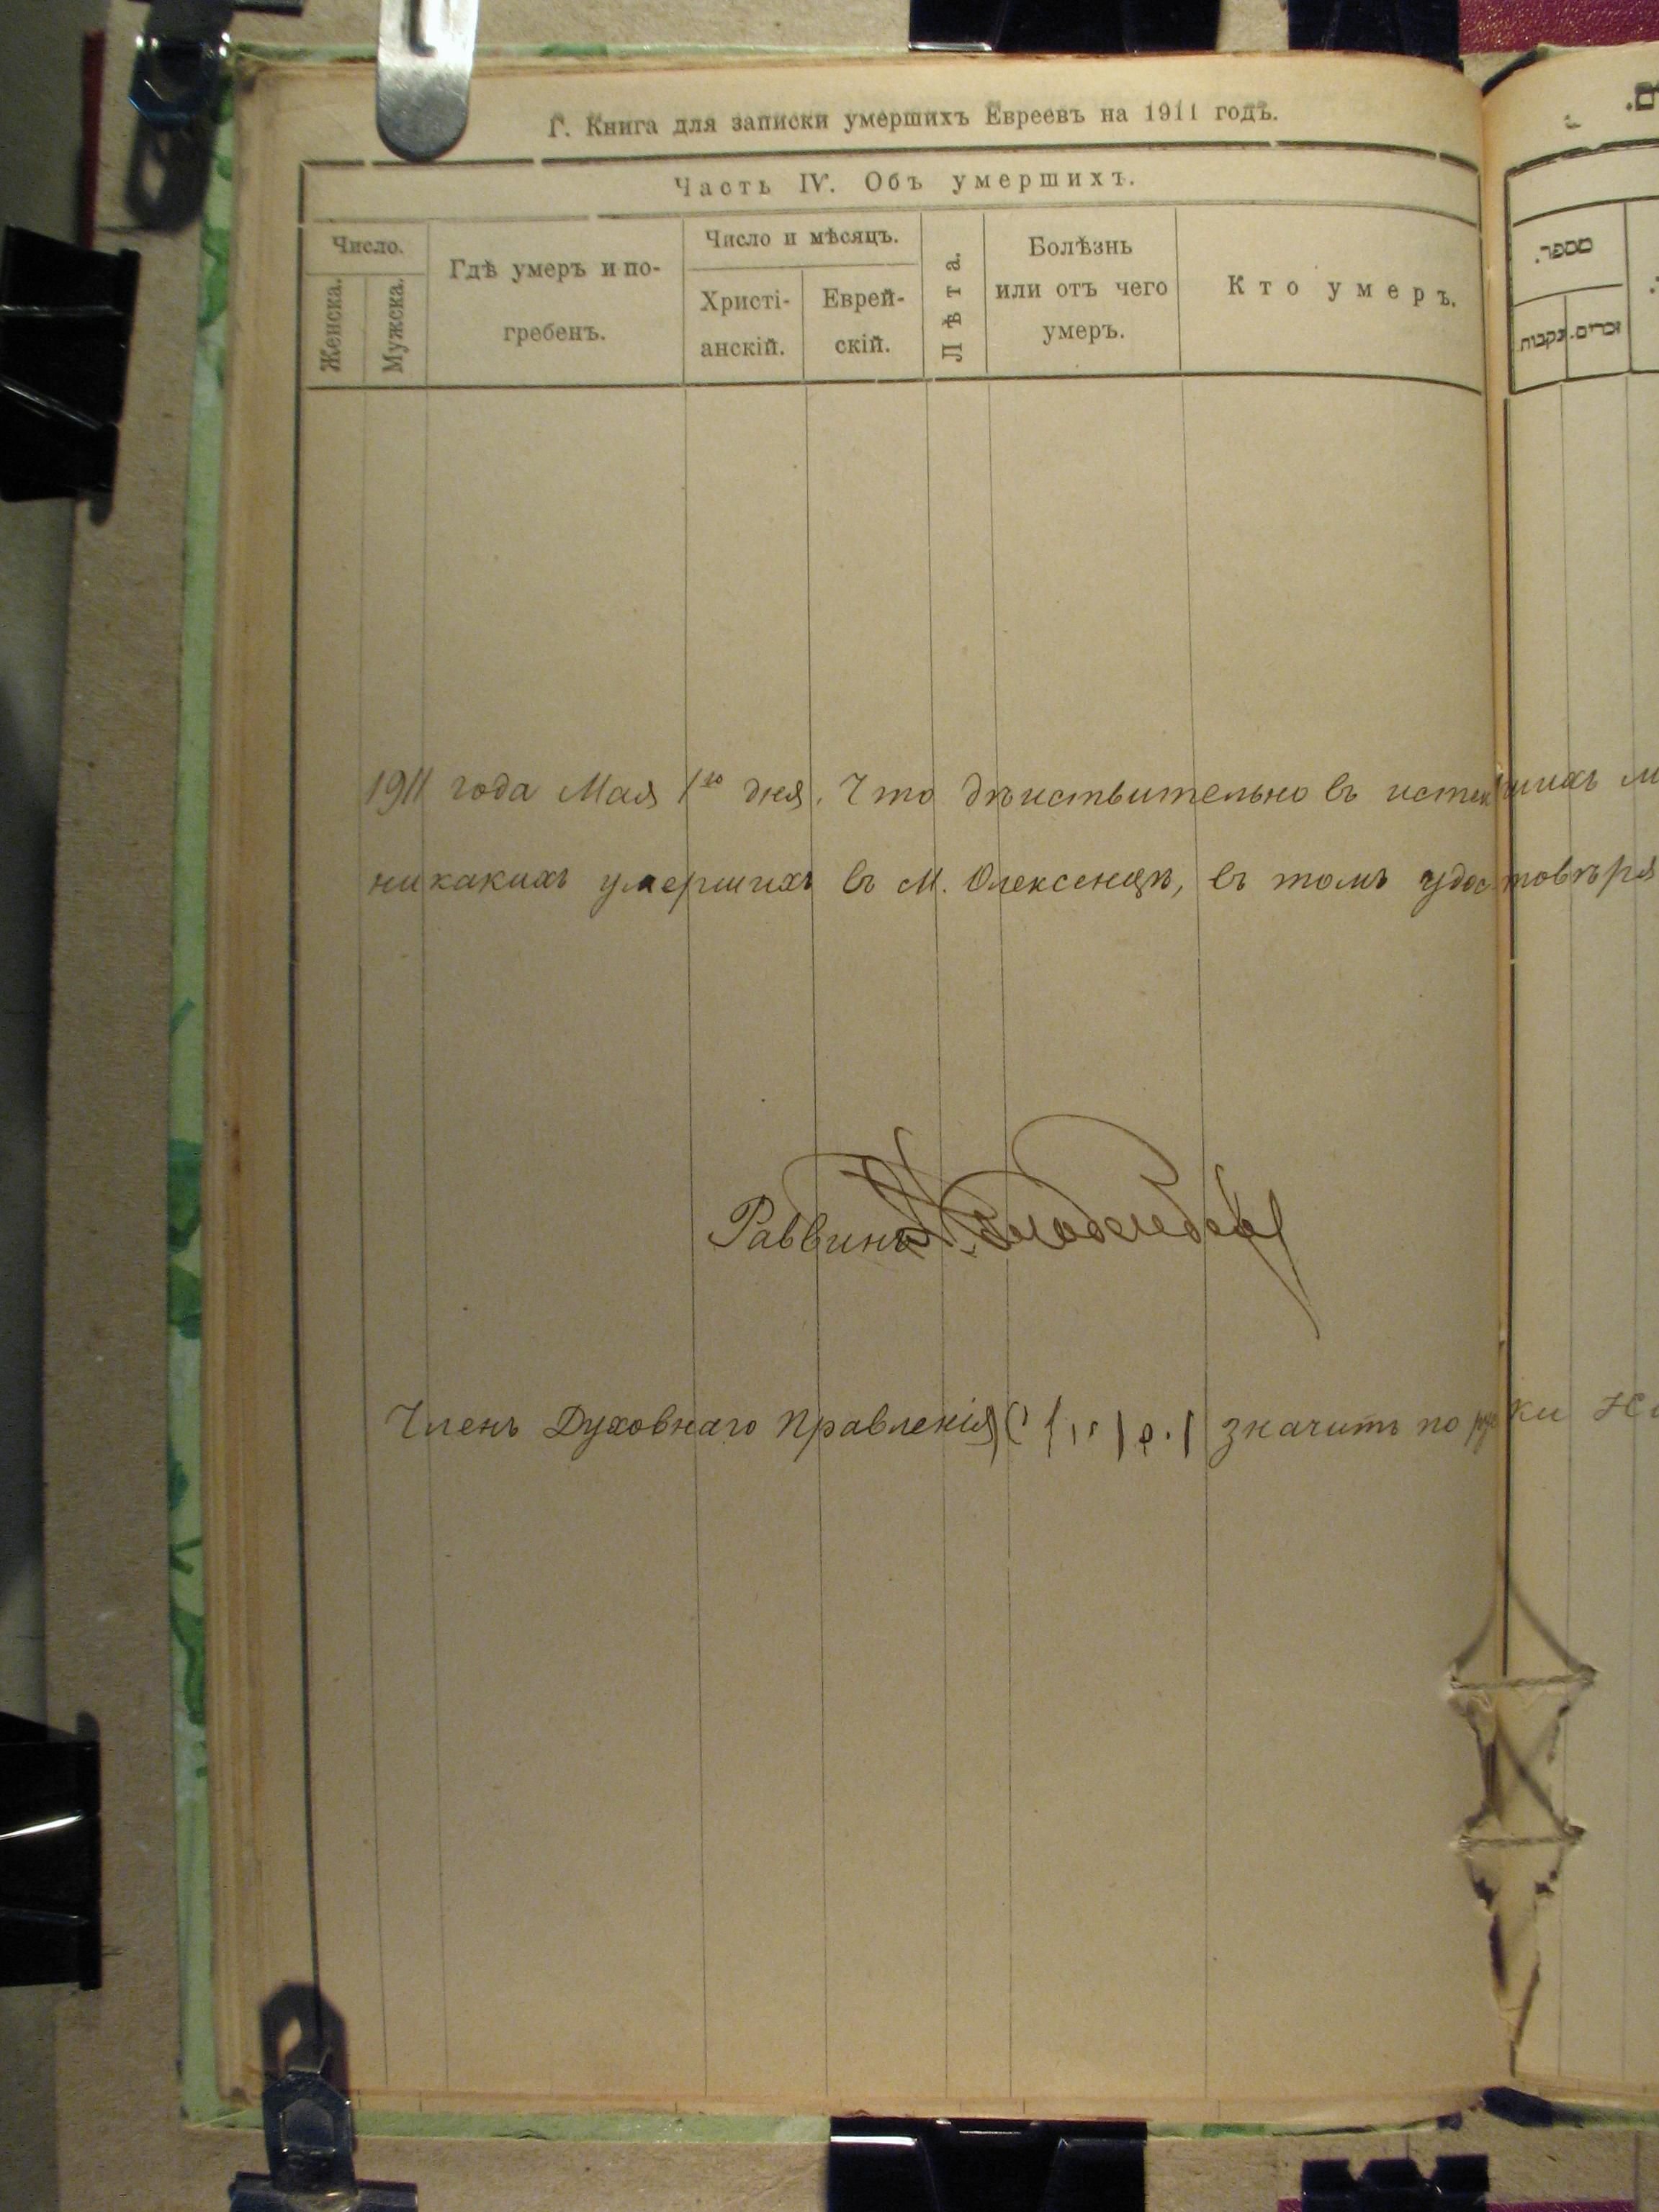 Г. Книга для записки умершихъ Евреевъ на 1911 годъ.
Часть IV. Объ умершихъ.
Число.
Женска.
Мужска.
Гдѣ умеръ и по-
гребенъ.
Число и мѣсяцъ.
Христі-
анскій.
Еврей-
скій.
Лѣта.
Болѣзнь
или отъ чего
умеръ.
Кто умеръ.
מספר.
נקבות.
זכרים.
1911 года Мая 1го дня. Что дѣиствительно въ истекшихъ
никакихъ умершихъ въ М. Олексенцѣ, въ томъ удостовѣря
Раввинъ
Членъ Духовнаго Правленія значитъ по